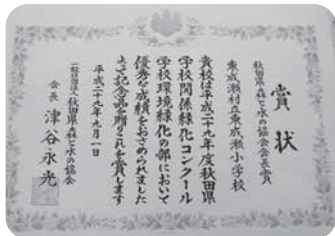 賞状
秋田県森と水の協会会長賞
東成瀬村立東成瀬小学校
貴校は平成二十九年度秋田県
学校関係緑化コンクール
学校環境緑化の部において
優秀な成績をおさめられました
よって記念品を贈りこれを賞します
平成二十九年九月一日
一般社団法人秋田県森と水の協会
会長 津谷永光